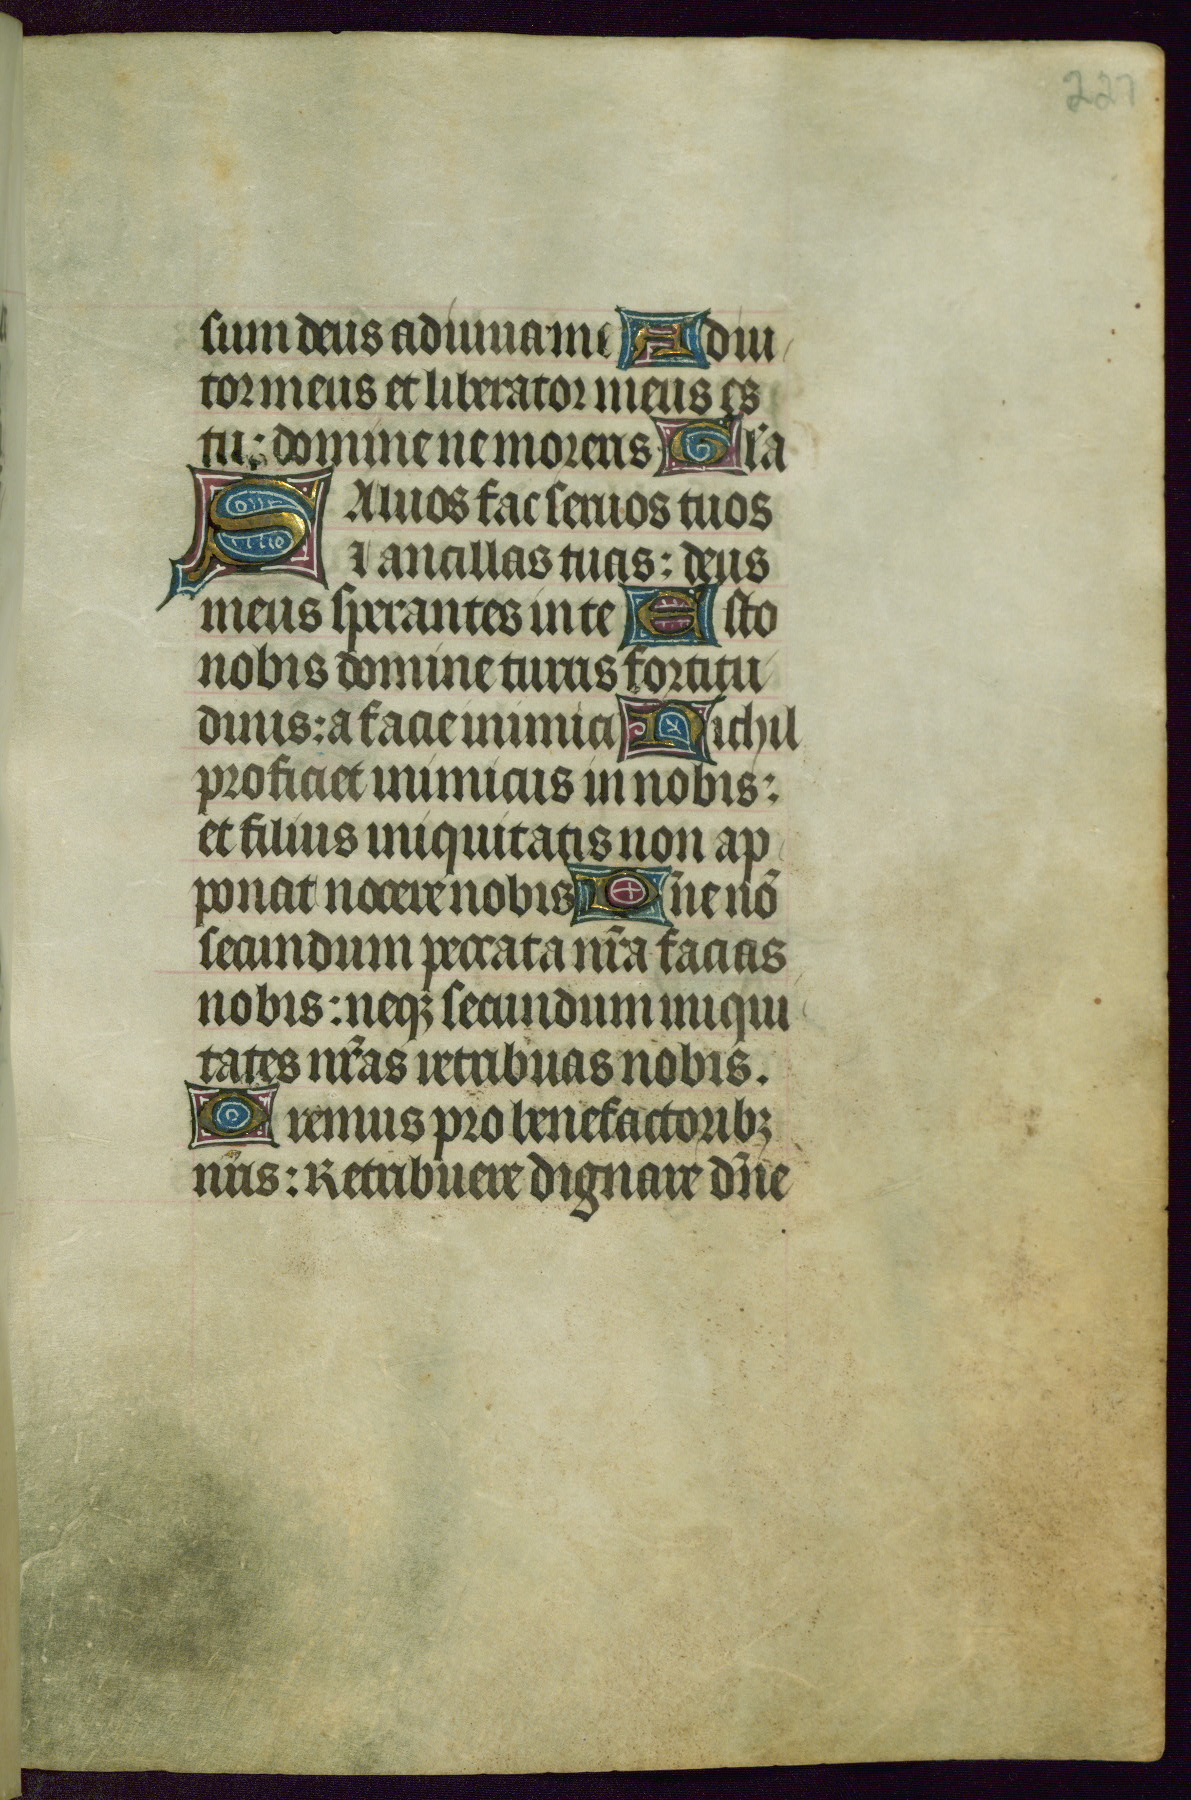 227
sum deus adiuua me Adiu
tor meus et liberator meus es
tu: domine ne moreris Gl̄a
Saluos fac seruos tuos
⁊ ancillas tuas: deus
meus sperantes in te Esto
nobis domine turris fortitu
dinis: a facie inimici Nichil
proficiet inimicus in nobis:
et filius iniquitatis non ap
ponat nocere nobis Dn̄e nō
secundum peccata nr̄a facias
nobis: neqꝫ secundum iniqui
tates nr̄as retribuas nobis.
Oremus pro benefactoribꝫ
nr̄is: Retribuere dignare dn̄e